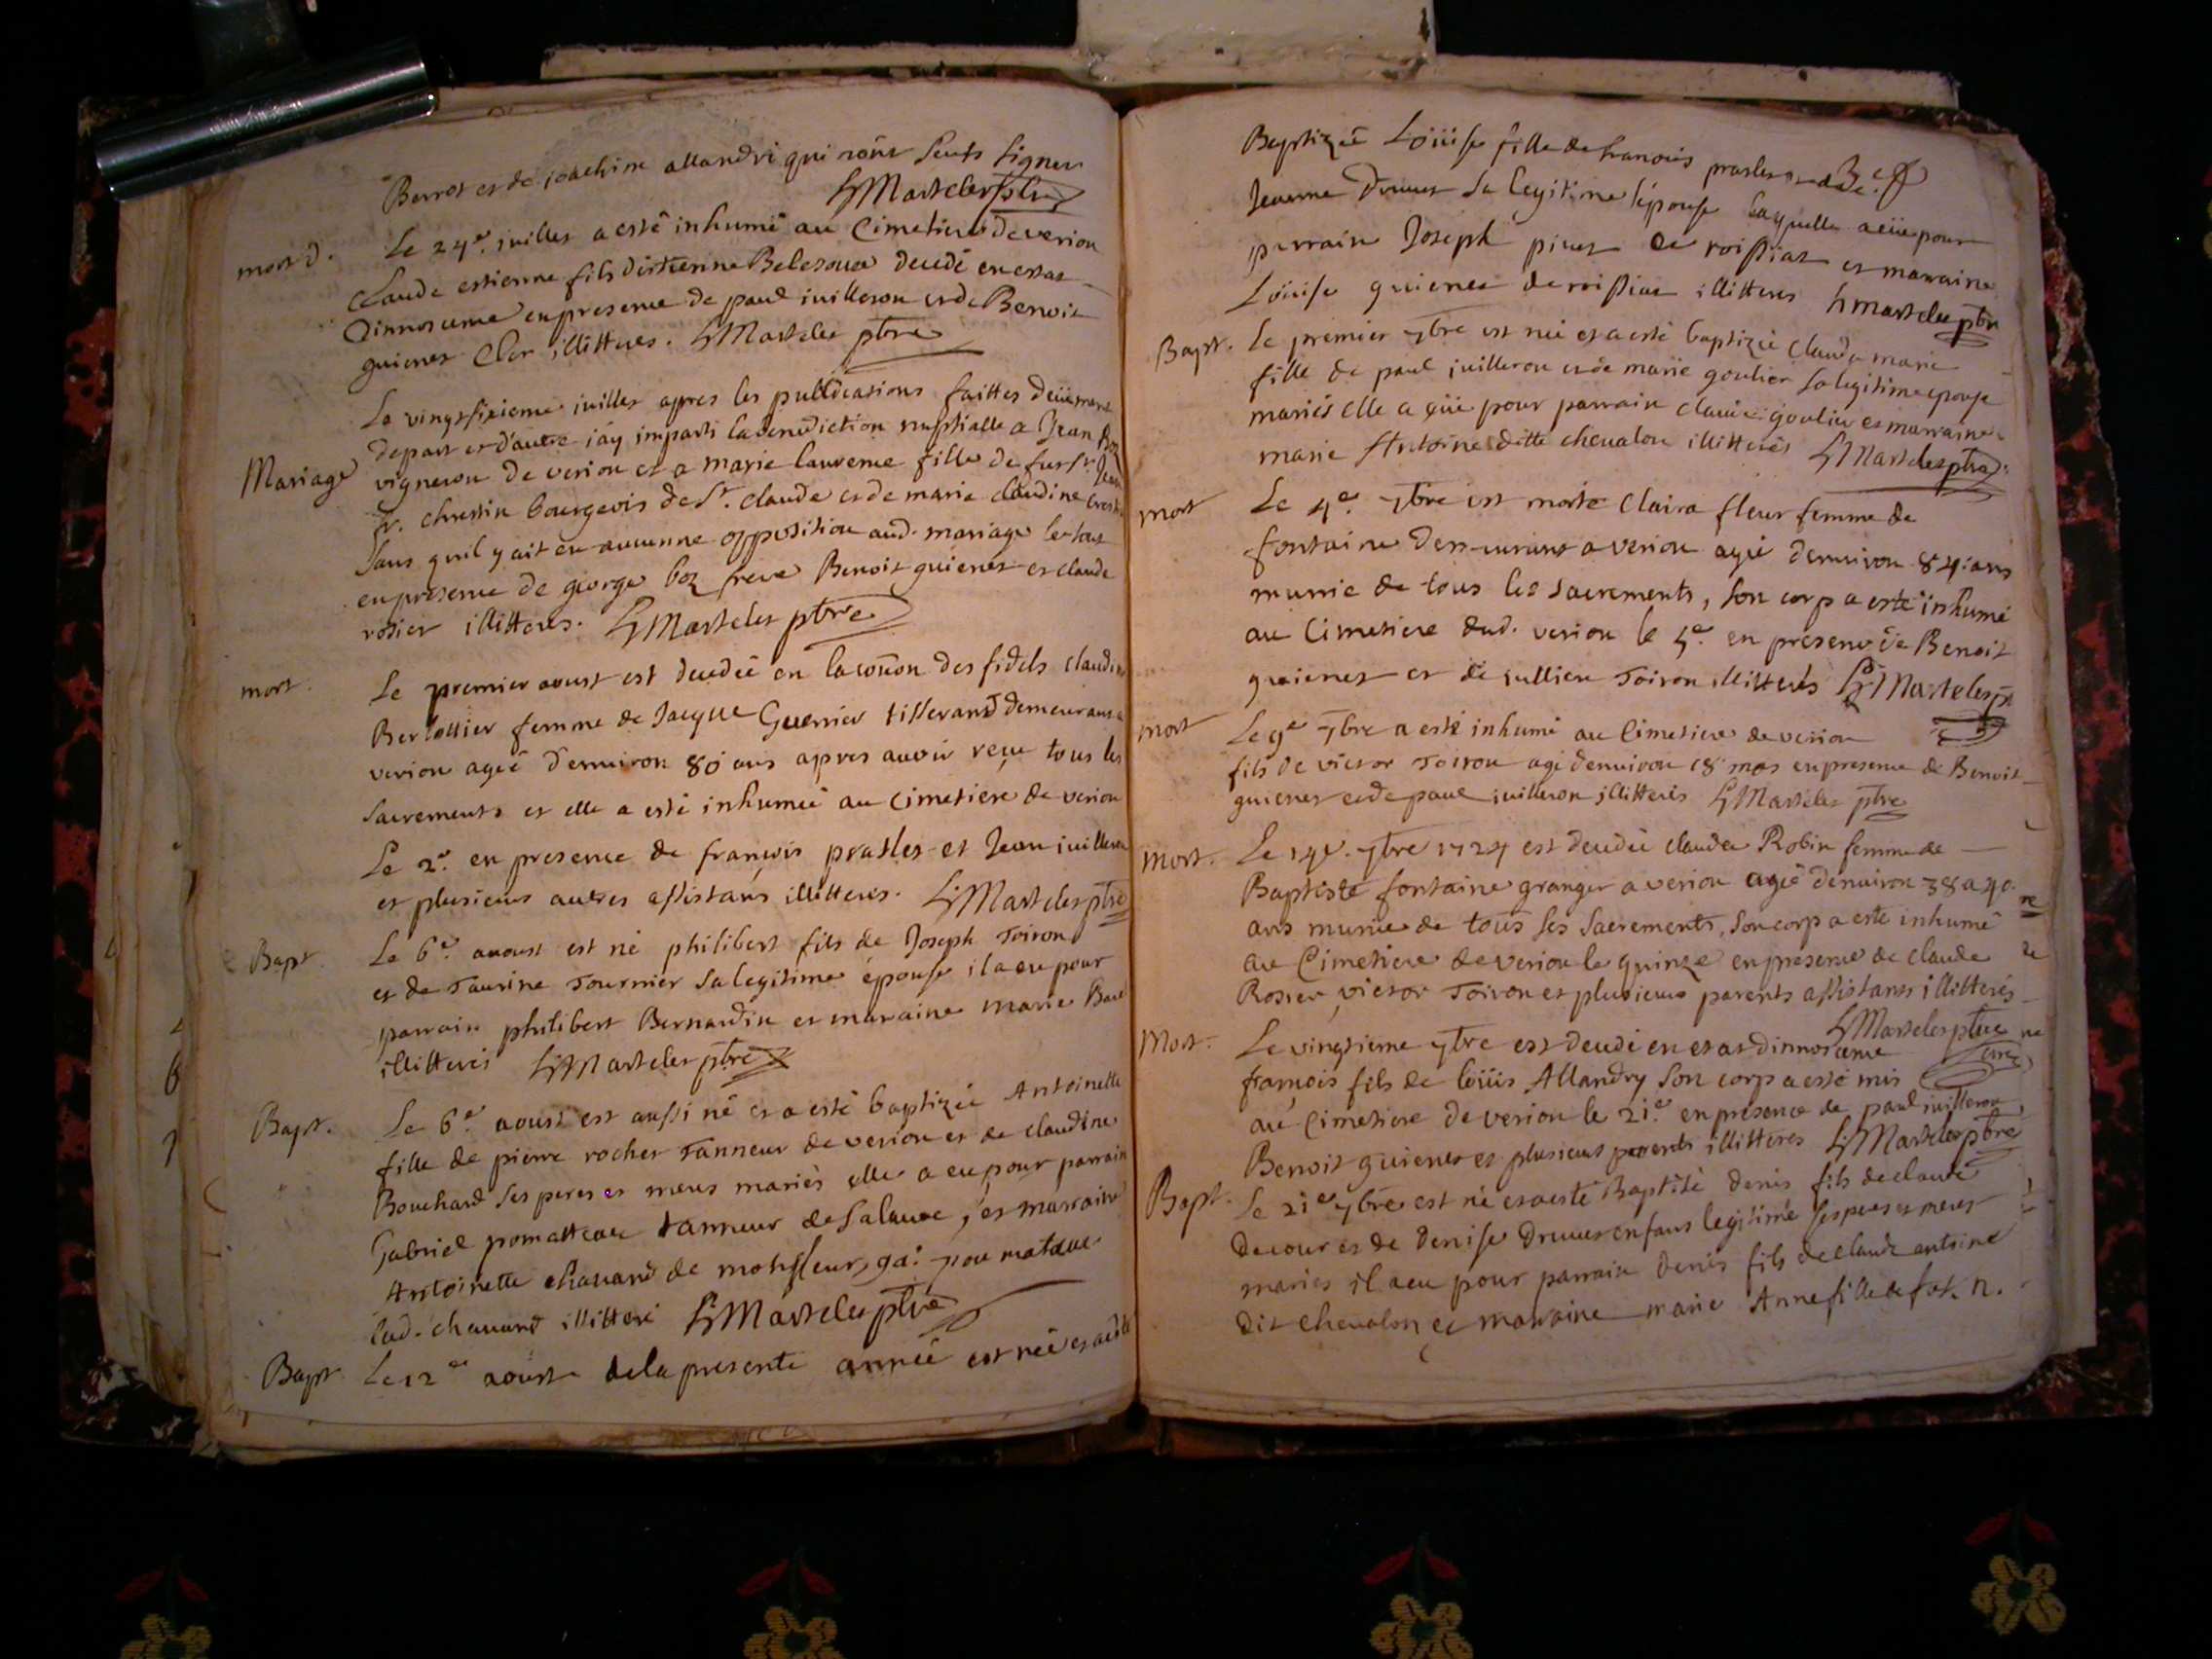 Berrot et de joachim allandri qui nônt sceuts signer
HMartelez ptre
mort d.
Le 24e. juillet a esté inhumé au Cimetiere de verion
Claude estienne fils d'estienne decedé en estat
Dinnoscence en presence de paul juilleron et de Benoit
guienet Cler illitterés. HMartelet ptre
Le vingt sixieme juillet apres les publications faittes deüement
Mariage
de part et d'autre iáy imparti la benediction nuptialle a Jean Boz
vigneron de verion et a marie laurence fille de fut sr. Jean
fr. chrestin bourgeois de St. Claude et de marie claudine
sans quil y ait eu aucunne opposition aud. mariage le tout
en presence de george boz frere Benoit guienet et claude
rosier illitterés. HMartelet ptre
mort.
Le premier aoust est decedée en la cōion des fidels claudine
Berlottier femme de Jacque Guerrier tisserand demeurant a
verion ageé d'environ 80 ans apres auoir reçu tous les
sacrements et elle a esté inhumeé au cimetiere de verion
Le 2e. en presence de françois prastet et Jean juilleron
et plusieurs autres assistans illitterés. HMartelet ptre
Bapt.
Le 6e. aoust est né philibert fils de Joseph Toiron
et de Taurine Tournier sa legitime épouse il a eu pour
parrain philibert Bernardin et marraine marie
illitterés HMartelet ptre
Bapt.
Le 6e aoust est aussi né et a esté baptizée Antoinette
fille de pierre rochet Tanneur de verion et de claudine
Bouchard ses peres et meres mariés elle a eu pour parrain
Gabriel tanneur de , et marraine
Antoinette chauard de
lad. chauard illitteré HMartelet ptre
Bapt.
Le 12e aoust de la presente année est née et a esté
Baptizeé Loüise fille de francois prastet et de
Jeanne Druuet sa legitime épouse laquelle a eüe pour
parrain Joseph de roissiat et marraine
Loüise guienet de roissiat illitterés HMartelet ptre
Bapt.
Le premier 7bre est née et a esté baptizée claude marie
fille de paul juilleron et de marie goulier sa legitime epouse
mariés elle a eüe pour parrain claude goulier et marraine
marie Antoine ditte cheualon illitterés HMartelet ptre
mort
Le 4e. 7bre est morte Claira fleur femme de
fontaine demeurant a verion ageé d'environ 84 ans
munie de tous les sacrements, son corp a esté inhumé
au Cimetiere dud. verion le 5e. en presence de Benoit
guienet et de jullien Toiron illitterés HMartelet p
mort
Le 9e 7bre a esté inhumé au Cimetiere de verion
fils de victor Toiron agé denviron 18 mois en presence de Benoit
guienet et de paul juilleron illitterés HMartelet ptre
mort.
Le 14e. 7bre 1724 est decedée claude Robin femme de
Baptiste fontaine granger a verion ageé d'environ 38 a 40
ans munie de tous ses sacrements, son corp a esté inhumé
au Cimetiere de verion le quinze en presence de claude
Rosier, victor Toiron et plusieurs parents assistants illitterés
HMartelet ptre
Mort.
Le vingtieme 7bre est decedé en estat dinnoscence
françois fils de loüis Allandry son corp a esté mis
au cimetiere de verion le 21e. en presence de paul juilleron
Benoit guienet et plusieurs parents illitterés HMartelet ptre
Bapt.
Le 21e 7bre est né et a esté Baptisé denis fils de claude
decour et de denise Druuet enfant legitimé ses peres et meres
mariés il a eu pour parrain denis fils de claude antoine
dit cheualon et marraine marie Anne fille de